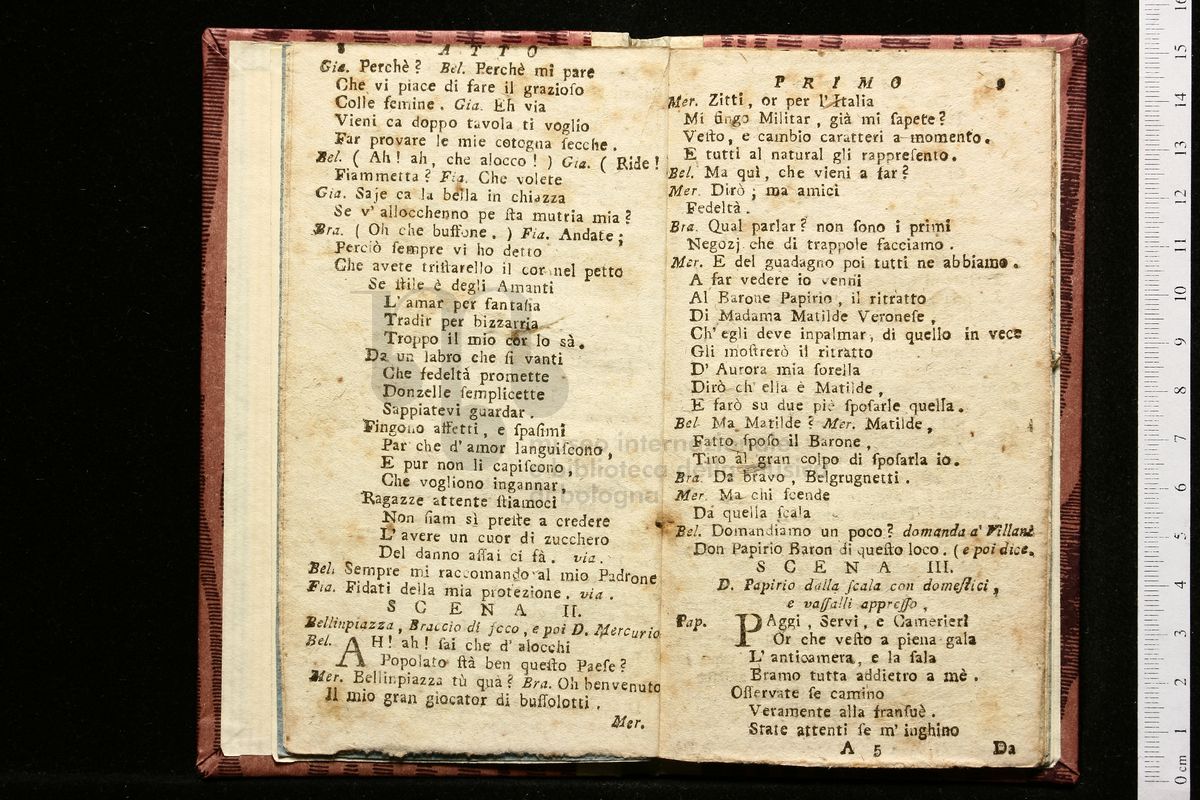 8 ATTO
Gia. Perchè? Bel. Perchè mi pare
Che vi piace di fare il grazioſo
Colle femine. Gia. Eh via
Vieni ca doppo tavola ti voglio
Far provare le mie cotogna ſecche.
Bel. ( Ah! ah, che alocco! ) Gia. ( Ride!
Fiammetta? Fia. Che volete
Gia. Saje ca la bella in chiazza
Se v' allocchenno pe ſta mutria mia?
Bra. ( Oh che buffone. ) Fia. Andate;
Perciò ſempre vi ho detto
Che avete triſtarello il cor nel petto
Se ſtile è degli Amanti
L' amar per fantaſia
Tradir per bizzarria
Troppo il mio cor lo sà.
Da un labro che ſi vanti
Che fedeltà promette
Donzelle ſemplicette
Sappiatevi guardar.
Fingono affetti, e ſpaſimi
Par che d' amor languiſcono,
E pur non li capiſcono,
Che vogliono ingannar,
Ragazze attente ſtiamoci
Non ſiam sì preſte a credere
L' avere un cuor di zucchero
Del danno aſſai ci fà. via.
Bel. Sempre mi raccomando al mio Padrone
Fia. Fidati della mia protezione. via.
SCENA II.
Bellinpiazza, Braccio di ſeco, e poi D. Mercurio
Bel. AH! ah! ſai che d' alocchi
Popolato ſtà ben queſto Paeſe?
Mer. Bellinpiazza tù quà? Bra. Oh benvenuto
Il mio gran giocator di buſſolotti.
Mer.
PRIMO 9
Mer. Zitti, or per l' Italia
Mi fingo Militar, già mi ſapete?
Veſto, e cambio caratteri a momento.
E tutti al natural gli rappreſento.
Bel. Ma quì, che vieni a far?
Mer. Dirò; ma amici
Fedeltà.
Bra. Qual parlar? non ſono i primi
Negozj che di trappole facciamo.
Mer. E del guadagno poi tutti ne abbiamo.
A far vedere io venni
Al Barone Papirio, il ritratto
Di Madama Matilde Veroneſe,
Ch' egli deve inpalmar, di quello in vece
Gli moſtrerò il ritratto
D' Aurora mia ſorella
Dirò ch' ella è Matilde,
E farò su due piè ſpoſarle queſſa.
Bel. Ma Matilde? Mer. Matilde,
Fatto ſpoſo il Barone,
Tiro al gran colpo di ſpoſarla io.
Bra. Da bravo, Belgrugnetti.
Mer. Ma chi ſcende
Da quella ſcala
Bel. Domandiamo un poco? domanda a' Villani
Don Papirio Baron di queſto loco. ( e poi dice.
SCENA III.
D. Papirio dalla ſcala con domeſtici,
e vaſſalli appreſſo,
Pap. PAggi, Servi, e Camerieri
Or che veſto a piena gala
L' anticamera, e la ſala
Bramo tutta addietro a mè.
Oſſervate ſe camino
Veramente alla franſuè.
State attenti ſe m' inghino
A 5 Da
museo internazionale
e biblioteca della musica
di bologna